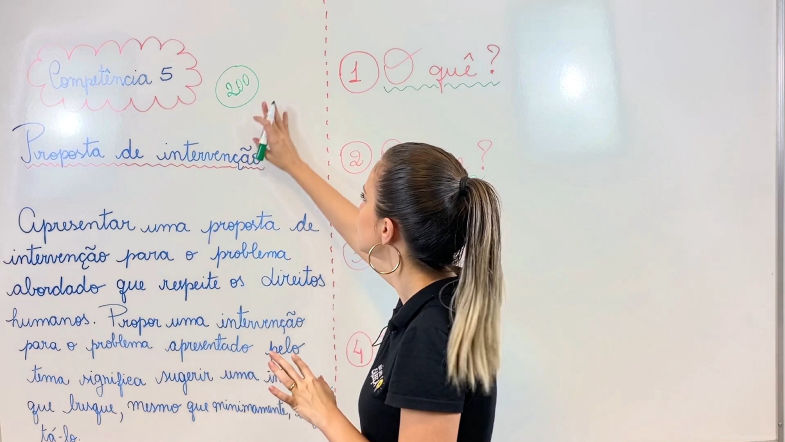 Competência 5
200
Proposta de intervenção
Apresentar uma proposta de
intervenção para o problema
abordado que respeite os direitos
humanos. Propor uma intervenção
para o problema apresentado pelo
tema significa sugerir uma
que busque, mesmo que minimamente,
tá-lo.
1 O quê?
2 ?
4